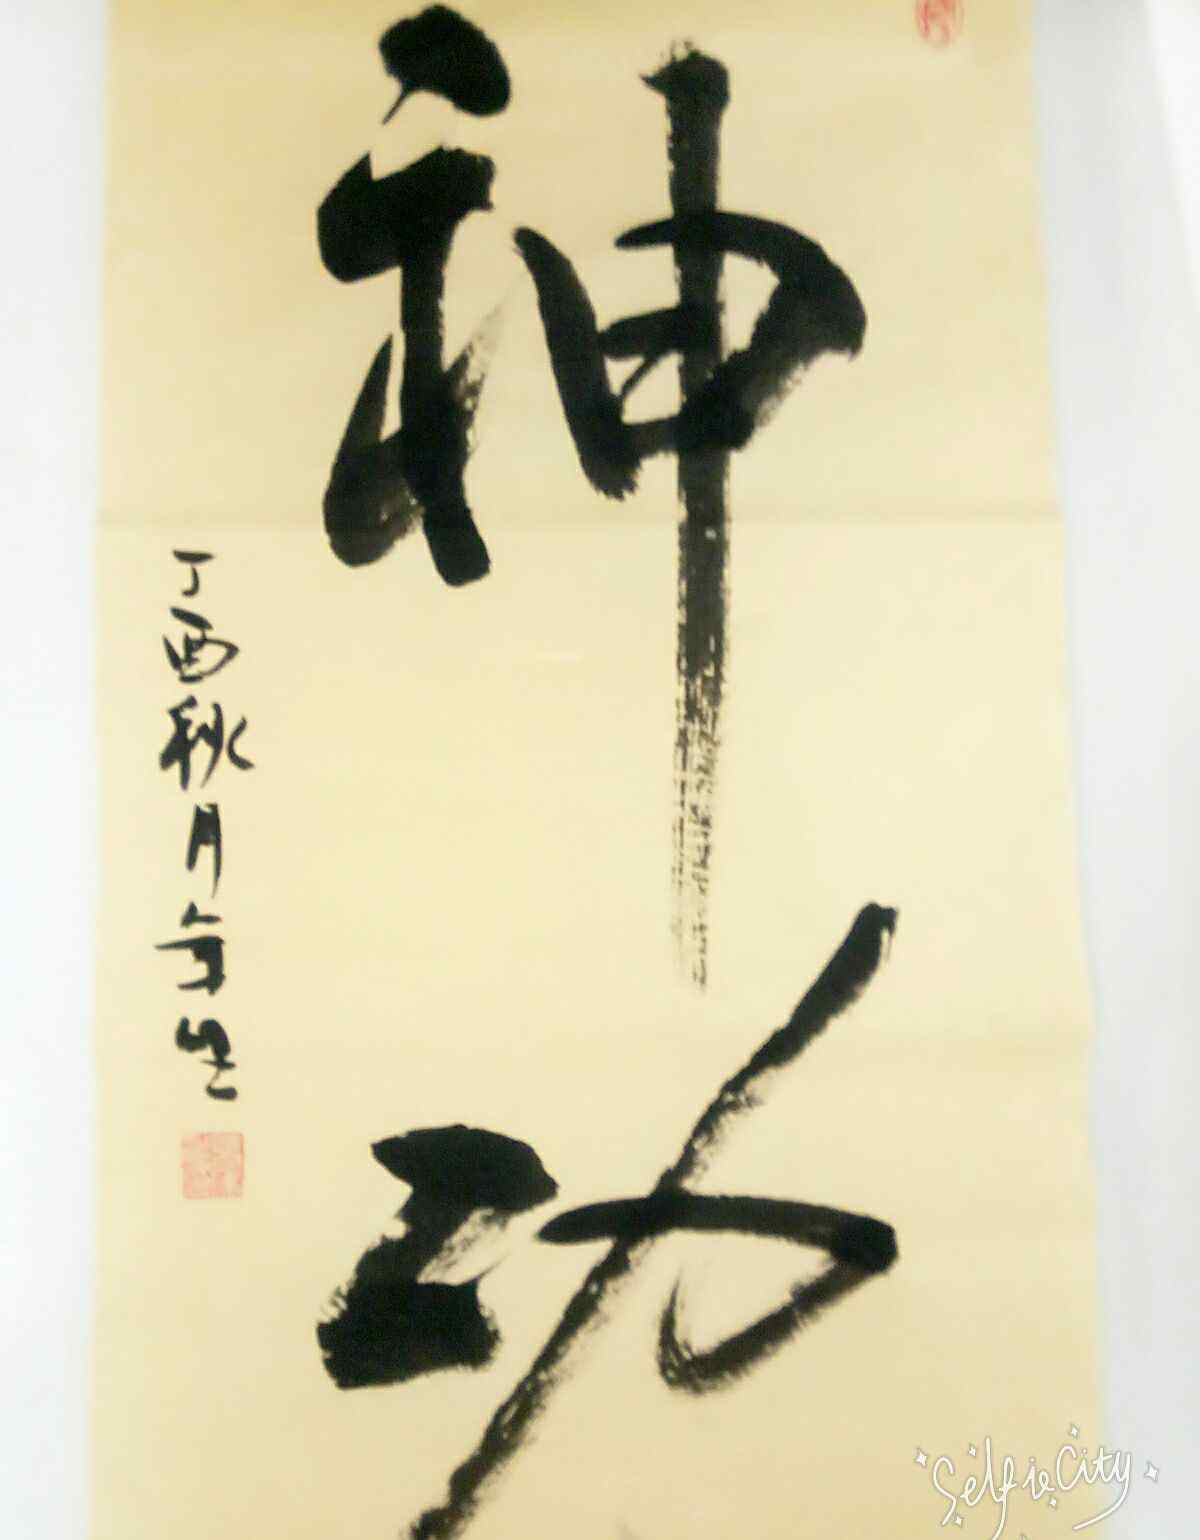 神功
丁酉秋月
SelfieCity